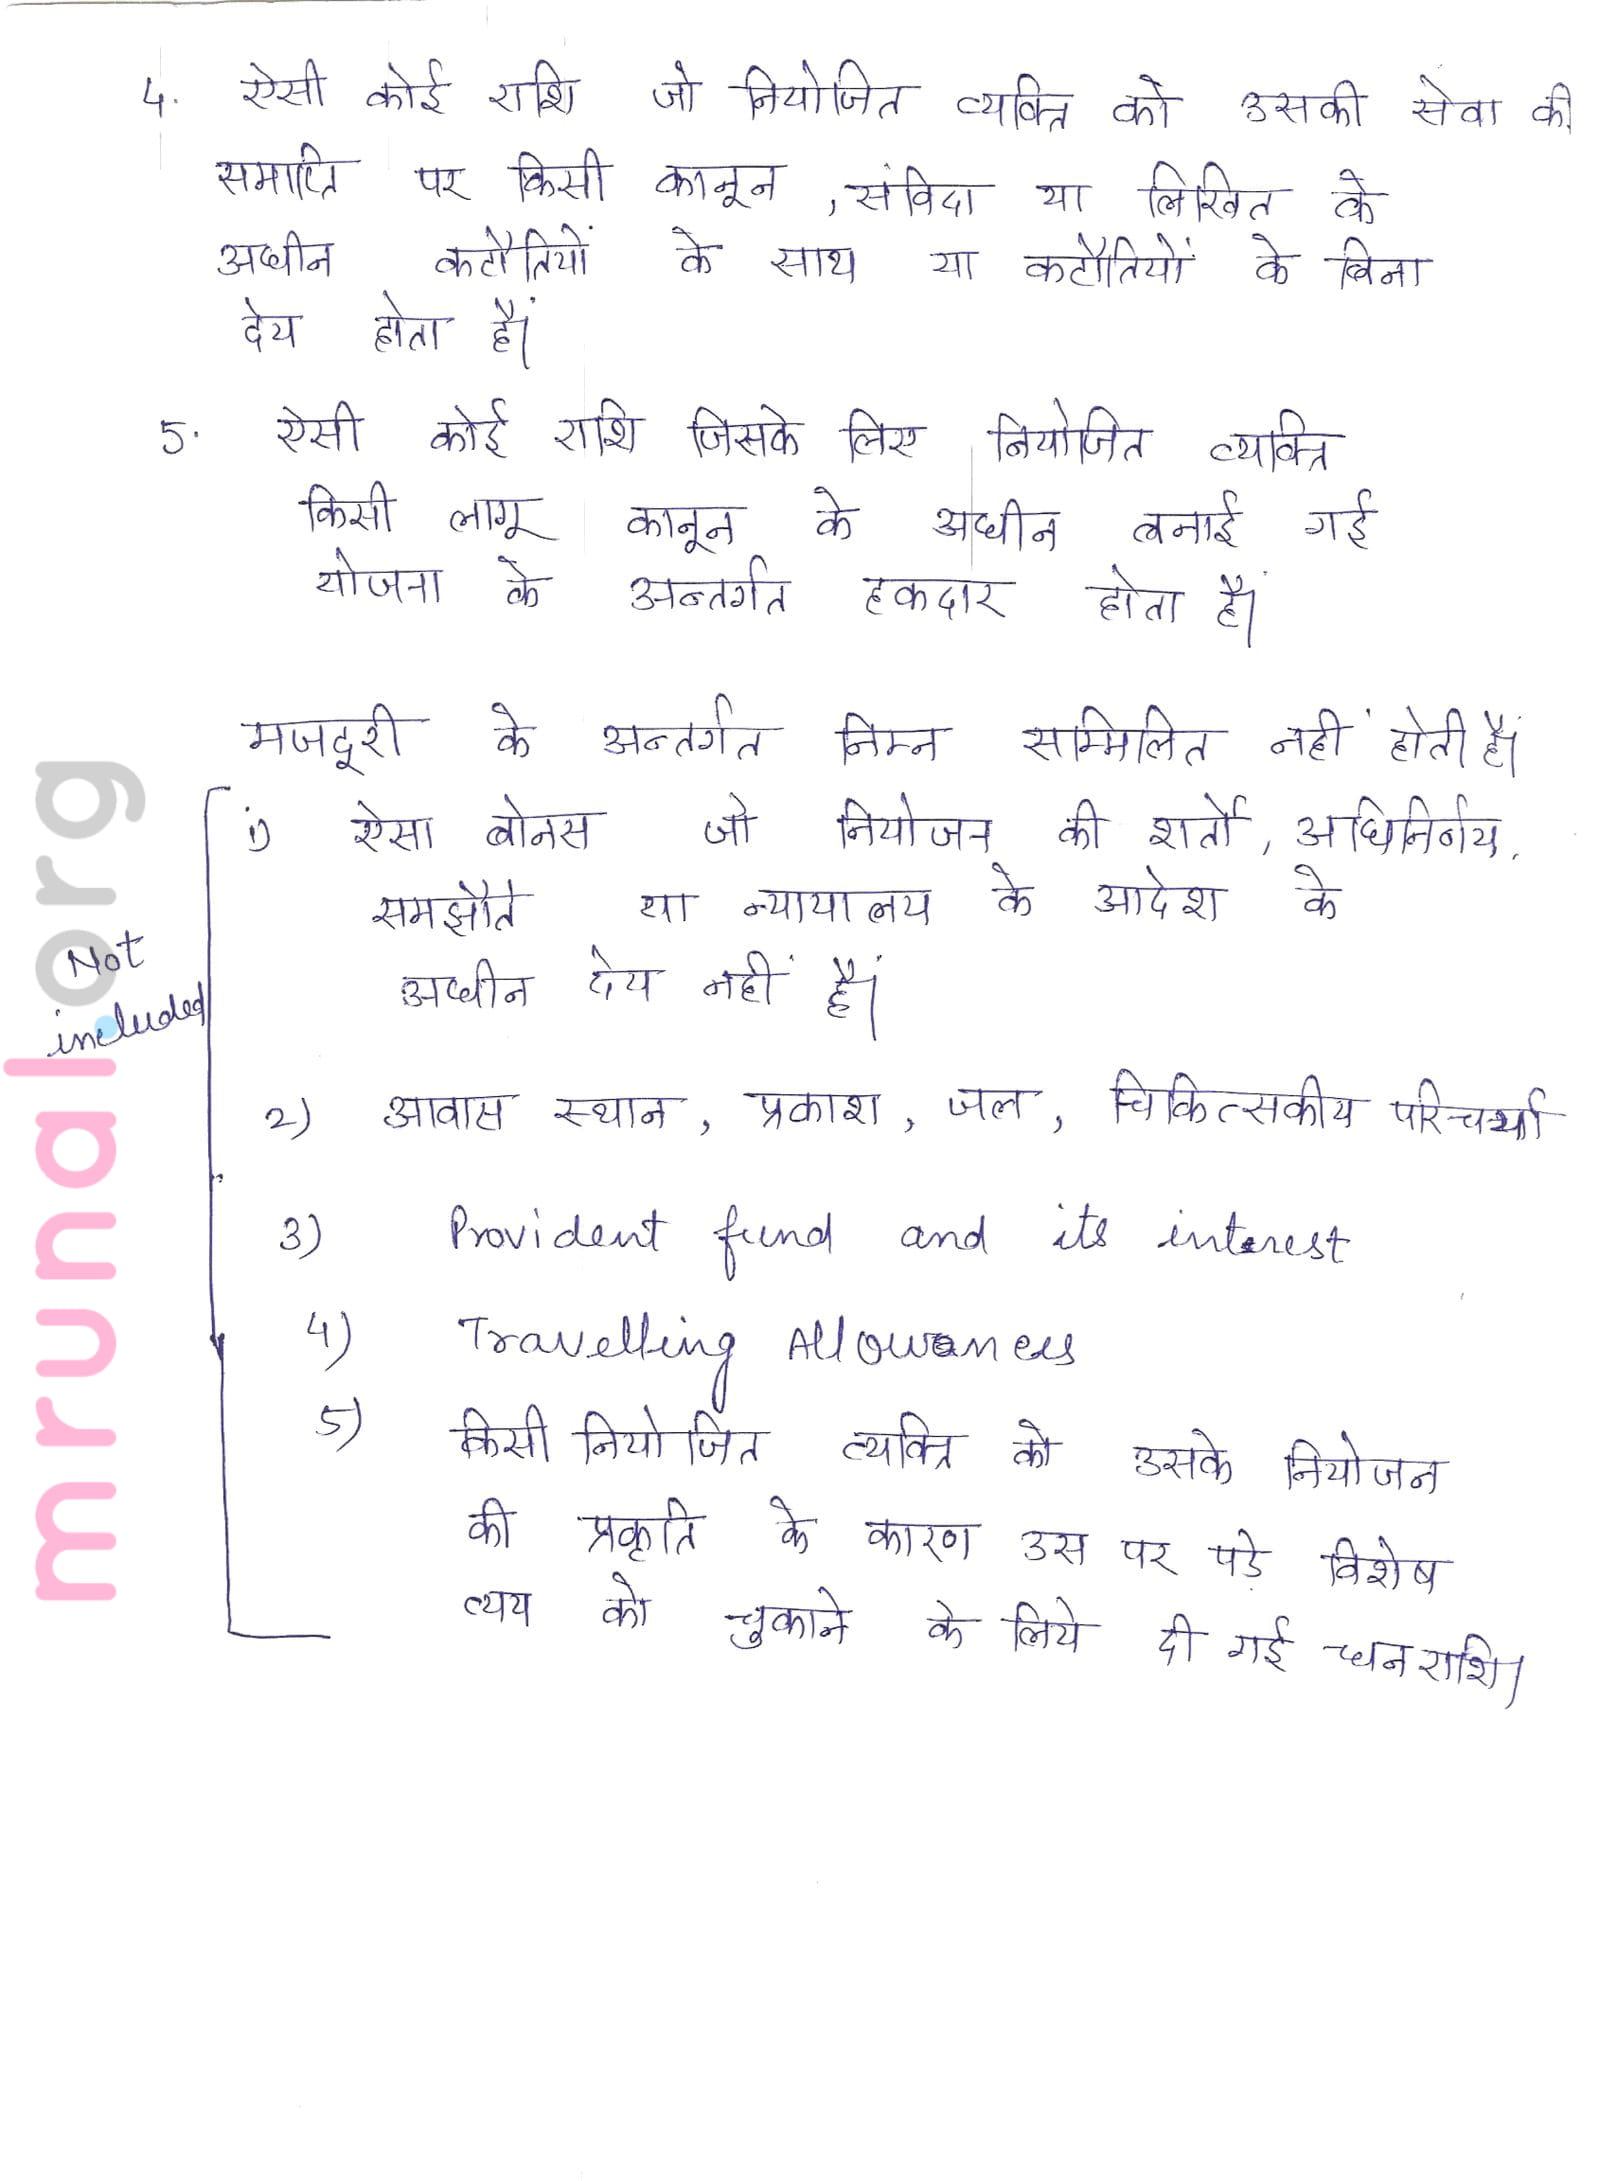 4. ऐसी कोई राशि जो नियोजित व्यक्ति को उसकी सेवा की
समाप्ति पर किसी कानून, संविदा या लिखित के
अधीन कटौतियों के साथ या कटौतियों के बिना
देय होता हैं।
5. ऐसी कोई राशि जिसके लिए नियोजित व्यक्ति
किसी लागू कानून के अधीन बनाई गई
योजना के अन्तर्गत हकदार होता हैं।
मजदूरी के अन्तर्गत निम्न सम्मिलित नहीं होती हैं।
1) ऐसा बोनस जो नियोजन की शर्तों, अधिनिर्णय,
समझौते या न्यायालय के आदेश के
अधीन देय नहीं हैं।
Not
included
2) आवास स्थान, प्रकाश, जल, चिकित्सकीय परिचर्या
3) Provident fund and its interest
4) Travelling Allowances
5) किसी नियोजित व्यक्ति को उसके नियोजन
की प्रकृति के कारण उस पर पड़े विशेष
व्यय को चुकाने के लिये दी गई धनराशि।
mrunal.org